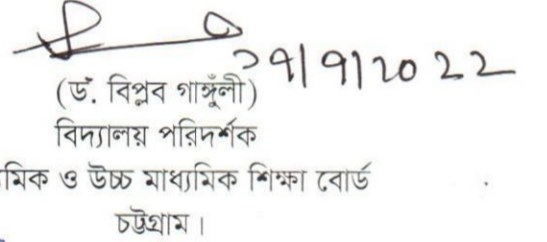 ২৭/৭/2022
(ড. বিপ্লব গাঙ্গুঁলী)
বিদ্যালয় পরিদর্শক
মিক ও উচ্চ মাধ্যমিক শিক্ষা বোর্ড
চট্টগ্রাম।